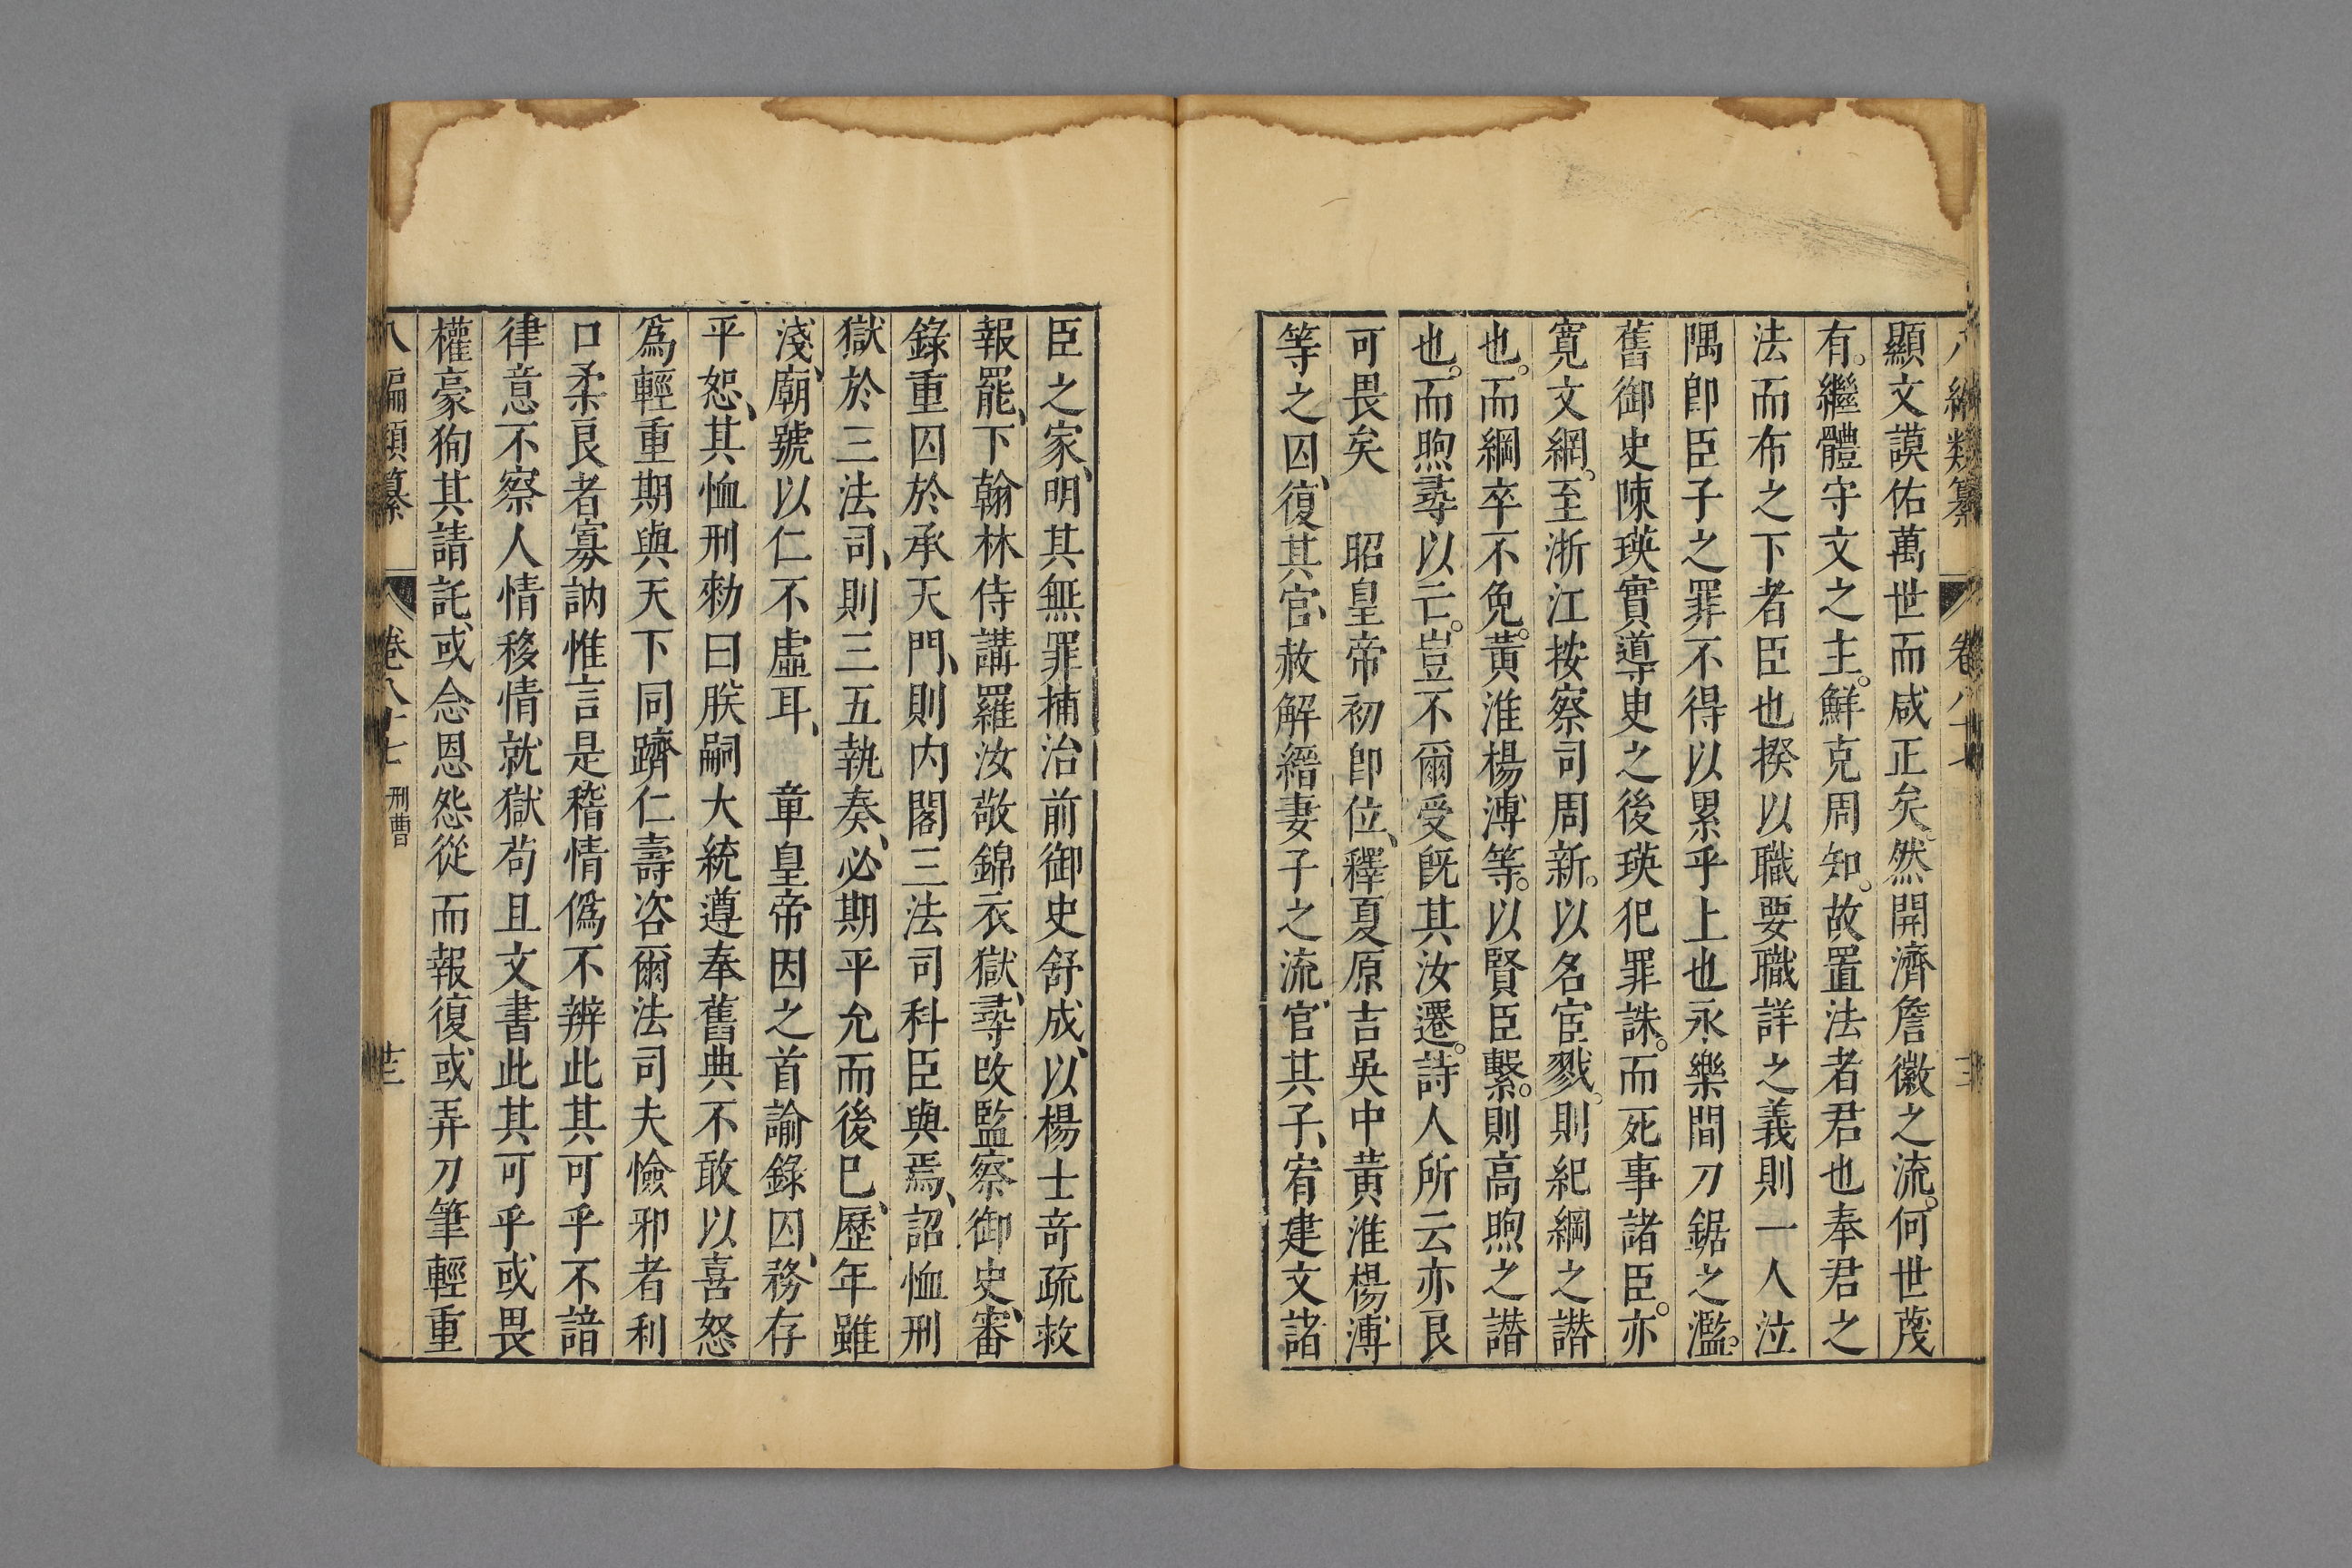 顯文謨佑萬世而咸正矣然開濟詹徽之流何世蔑
有。繼體守文之主。鮮克周知。故置法者君也奉君之
法而布之下者臣也揆以職要職詳之義則一人泣
隅卽臣子之罪不得以累乎上也永樂間刀鋸之濫。
舊御史陳瑛實導史之後瑛犯罪誅。而死事諸臣。亦
寬文網。至浙江按察司周新。以名宦戮。則紀綱之譖
也。而綱卒不免。黃淮楊溥等。以賢臣繫。則高煦之譖
也。而煦尋以亡。豈不爾受旣其汝遷。詩人所云亦良
可畏矣　昭皇帝初卽位、釋夏原吉吳中黃淮楊溥
等之囚、復其官、赦解縉妻子之流、官其子、宥建文諸
臣之家、明其無罪捕治前御史舒成、以楊士奇疏救
報罷、下翰林侍講羅汝敬錦衣獄、尋改監察御史、審
錄重囚於承天門、則内閣三法司科臣與焉、詔恤刑
獄於三法司、則三五執奏、必期平允而後已、歷年雖
淺、廟號以仁不虛耳、　章皇帝因之首諭錄囚、務存
平恕、其恤刑勑曰朕嗣大統遵奉舊典不敢以喜怒
爲輕重期與天下同躋仁壽咨爾法司夫憸邪者利
口柔良者寡訥惟言是稽情僞不辨此其可乎不諳
律意不察人情移情就獄苟且文書此其可乎或畏
權豪徇其請託、或念恩怨從而報復或弄刀筆輕重
八編類纂　卷八十七　刑曹